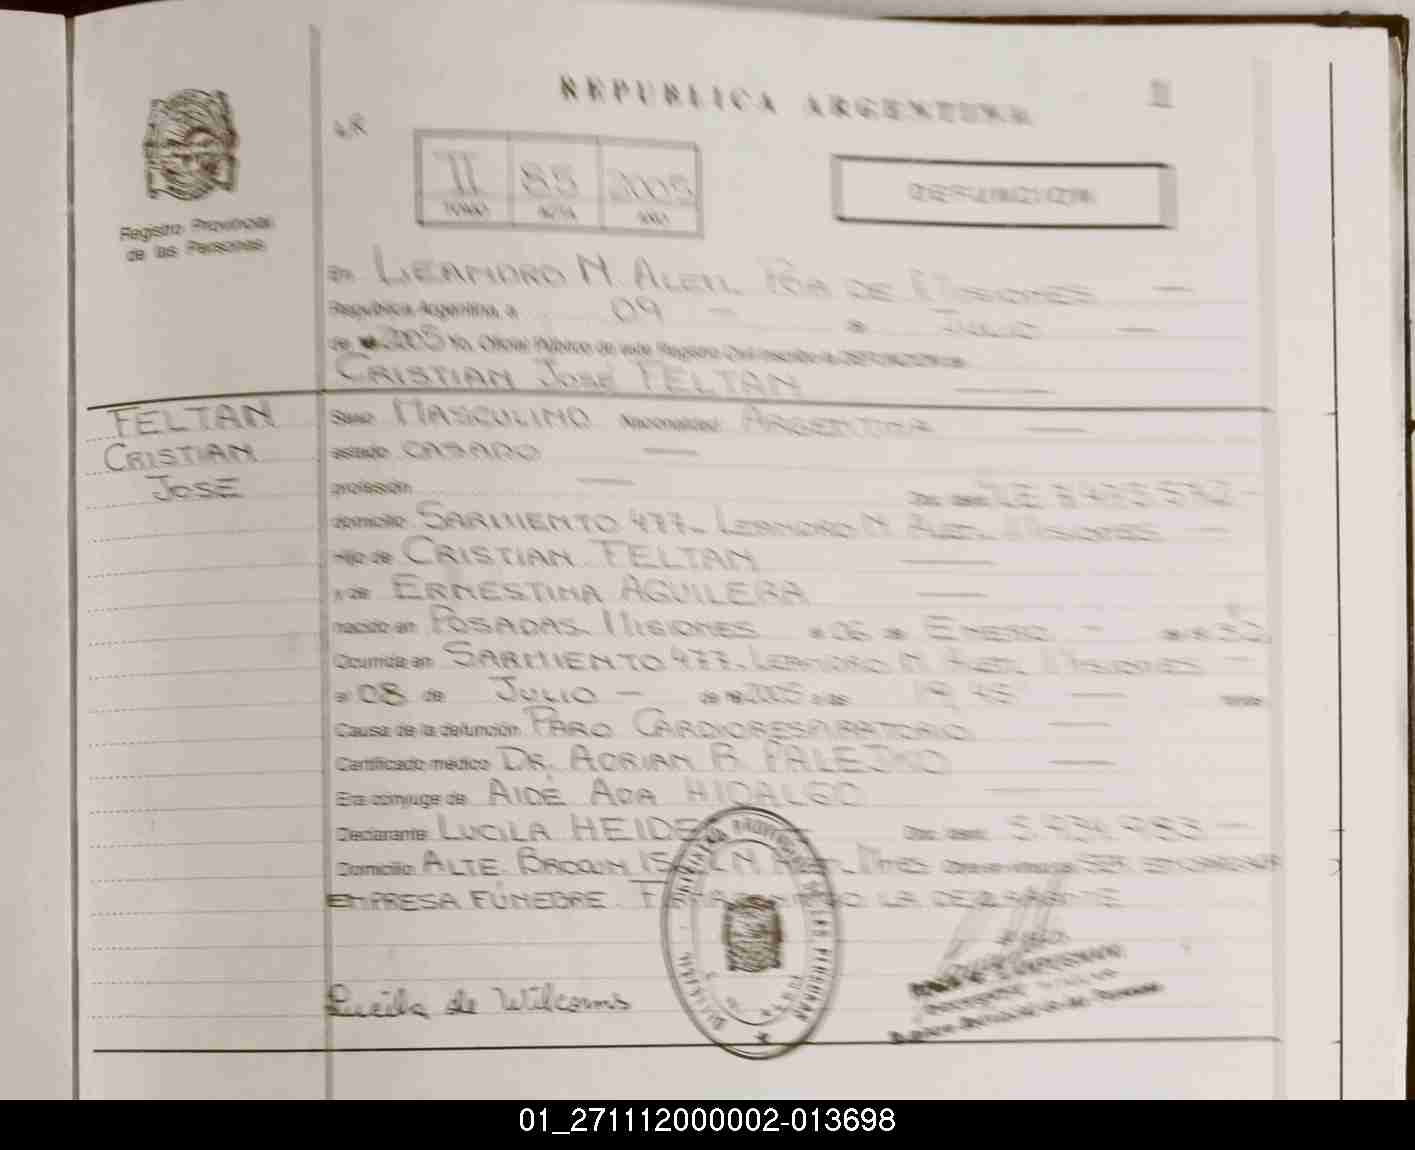 REPUBLICA ARGENTINA
Registro Provincial
de las Personas
II 85 2005
TOMO ACTA AÑO
DEFUNCION
En LEANDRO N. ALEM, PCIA DE MISIONES —
República Argentina, a 09 — de JULIO —
de 2005 Yo, Oficial Público de este Registro Civil inscribo la DEFUNCION de
CRISTIAN JOSÉ FELTAN —
FELTAN
CRISTIAN
JOSÉ
Sexo MASCULINO Nacionalidad ARGENTINA —
estado CASADO —
profesión — Doc. Ident.
domicilio SARMIENTO 477- LEANDRO N. ALEM, MISIONES —
Hijo de CRISTIAN FELTAN —
y de ERNESTINA AGUILERA —
nacido en POSADAS, MISIONES el 06 de ENERO —
Ocurrida en SARMIENTO 477- LEANDRO N. ALEM, MISIONES —
el 08 de JULIO — de 2005 a las 19,45 — horas
Causa de la defunción PARO CARDIORESPIRATORIO —
Certificado médico DR. ADRIAN R. PALEJKO —
Era cónyuge de AIDÉ ADA HIDALGO —
Declarante LUCILA HEIDE — Doc. Ident. 5.934.983 —
Domicilio ALTE. BROWN N. ALEM, MNES
EMPRESA FÚNEBRE. LA DECLARANTE
Lucila de Wilcoms
01_271112000002-013698